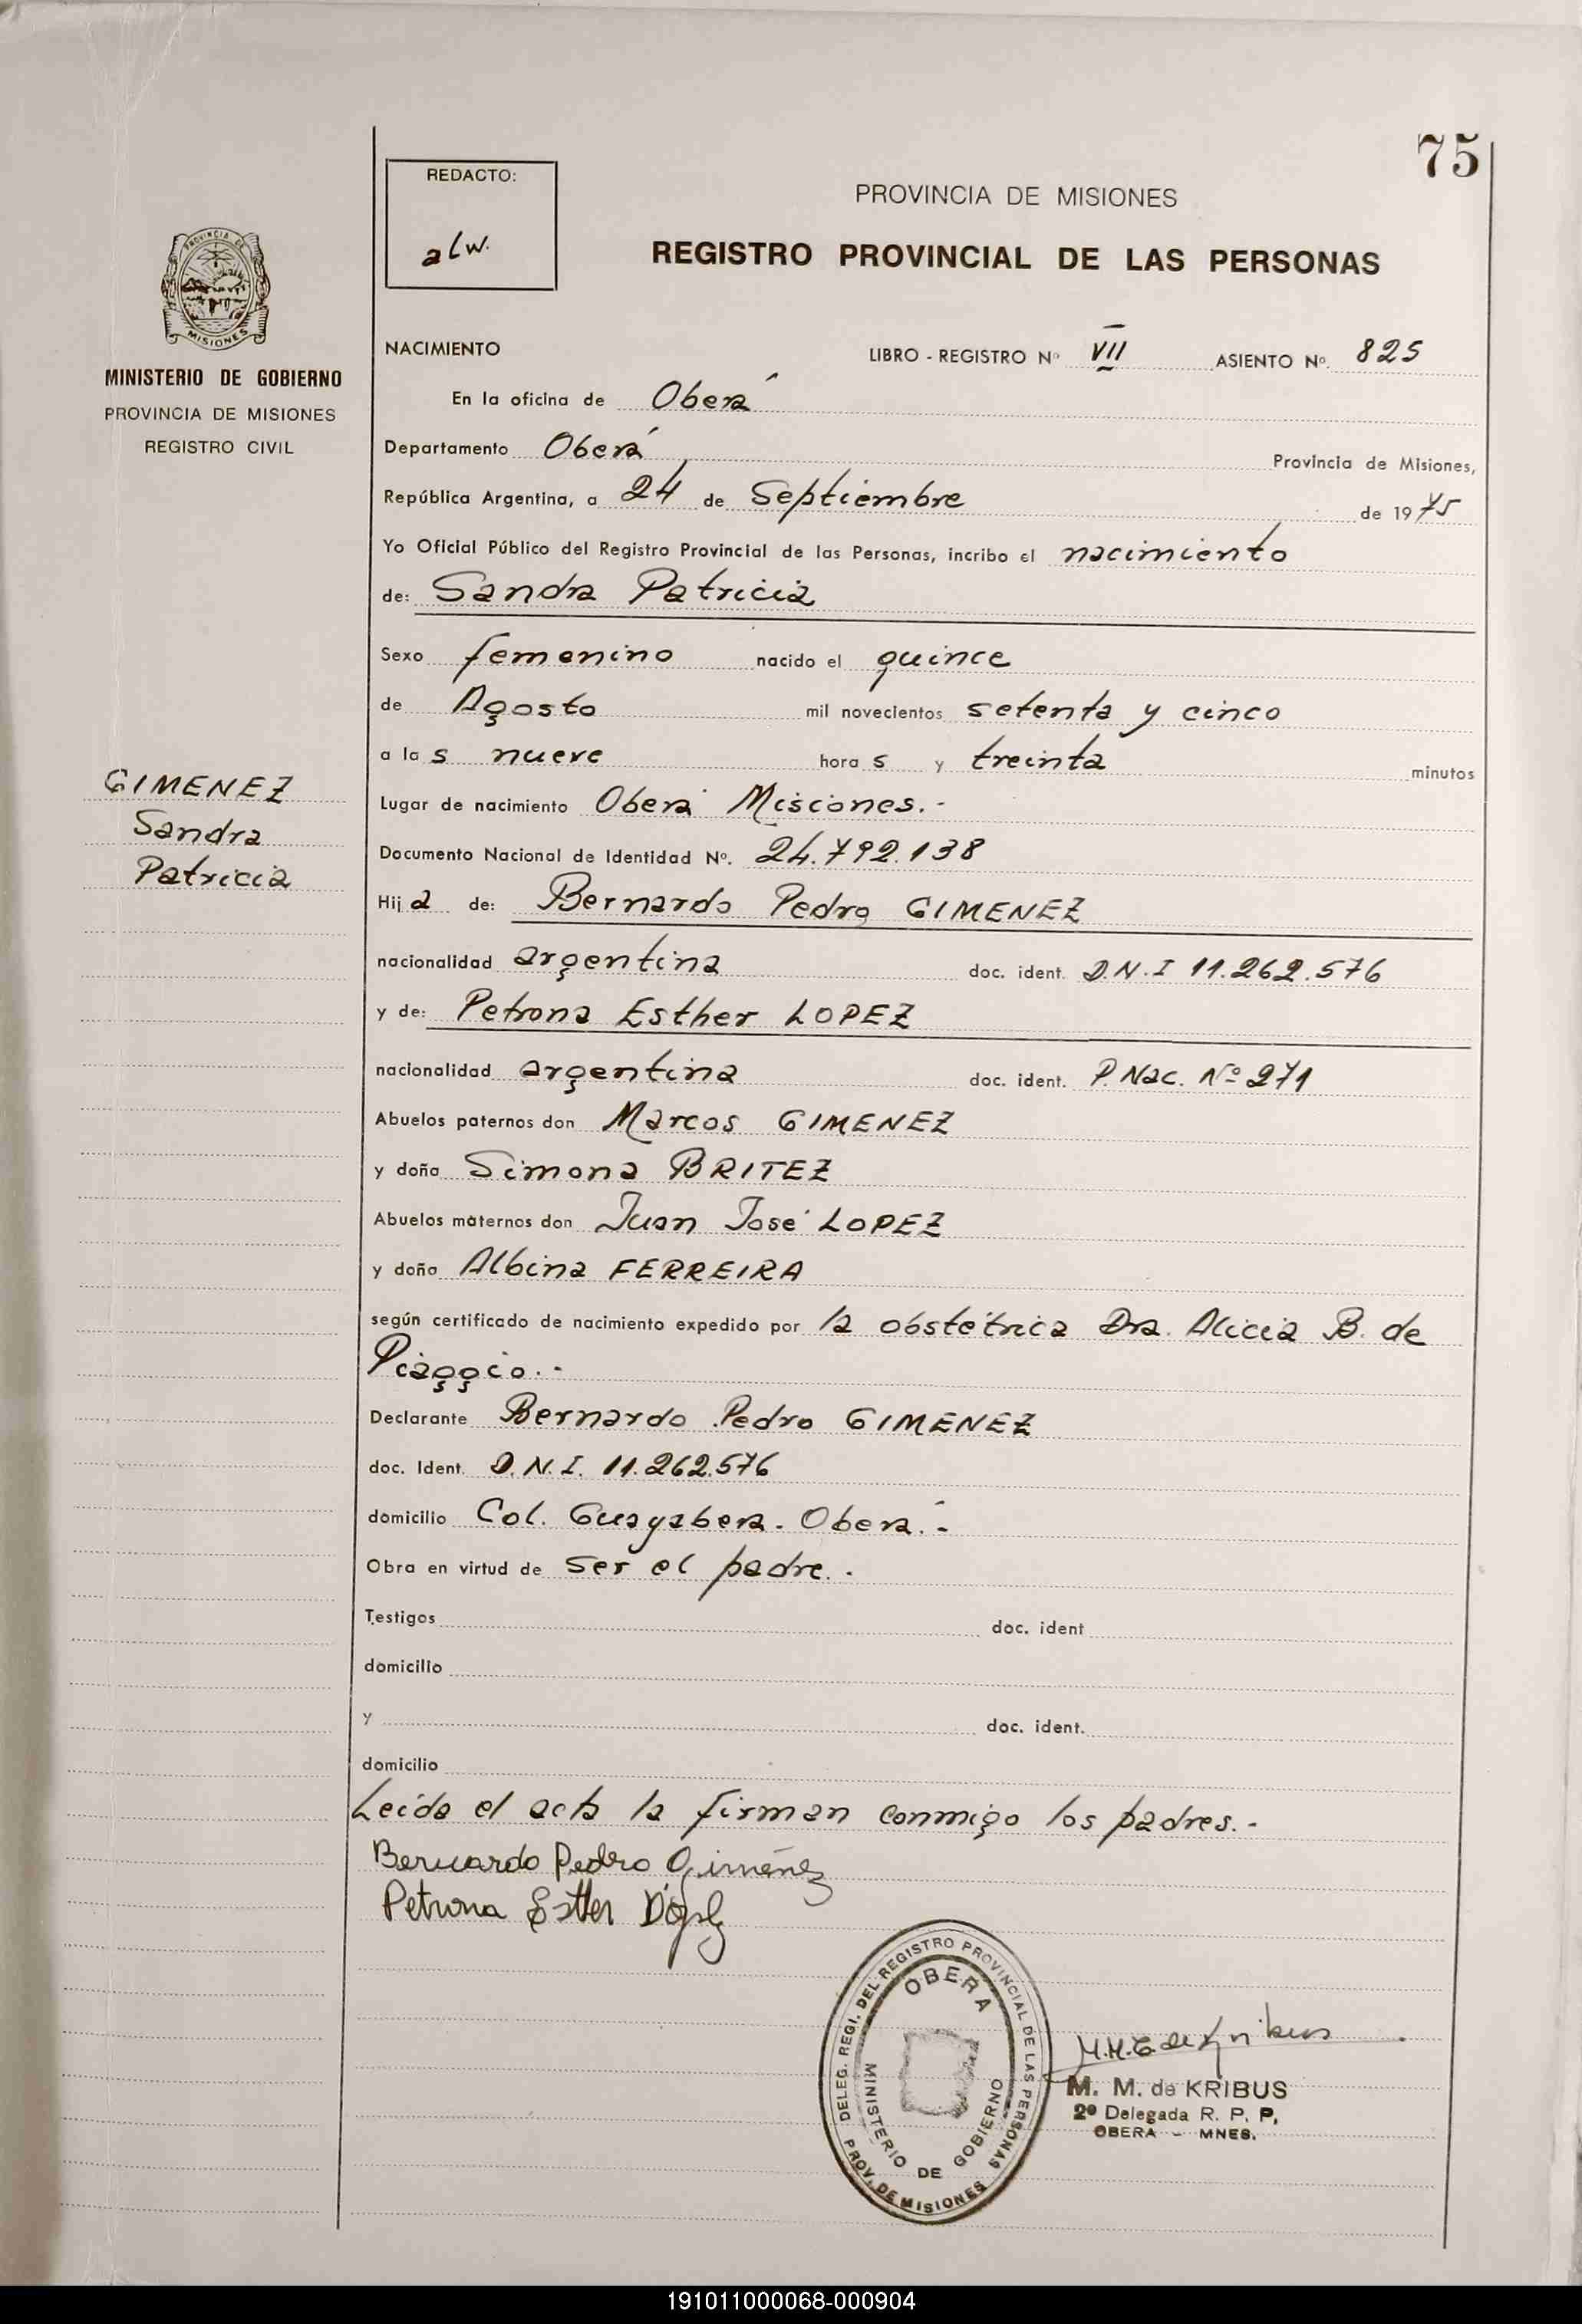 75
REDACTO:
alw.
PROVINCIA DE MISIONES
REGISTRO PROVINCIAL DE LAS PERSONAS
PROVINCIA DE
MISIONES
MINISTERIO DE GOBIERNO
PROVINCIA DE MISIONES
REGISTRO CIVIL
GIMENEZ
Sandra
Patricia
NACIMIENTO LIBRO - REGISTRO Nº VII ASIENTO Nº. 825
En la oficina de Oberá
Departamento Oberá Provincia de Misiones,
República Argentina, a 24 de Septiembre de 1975
Yo Oficial Público del Registro Provincial de las Personas, incribo el nacimiento
de: Sandra Patricia
Sexo femenino nacido el quince
de Agosto mil novecientos setenta y cinco
a las nueve horas y treinta minutos
Lugar de nacimiento Oberá Misiones.-
Documento Nacional de Identidad Nº. 24.792.138
Hija de: Bernardo Pedro GIMENEZ
nacionalidad argentina doc. ident. D.N.I 11.262.576
y de: Petrona Esther LOPEZ
nacionalidad argentina doc. ident. P. Nac. Nº 271
Abuelos paternos don Marcos GIMENEZ
y doña Simona BRITEZ
Abuelos maternos don Juan José LOPEZ
y doña Albina FERREIRA
según certificado de nacimiento expedido por la obstétrica Dra. Alicia B. de
Piaggio.-
Declarante Bernardo Pedro GIMENEZ
doc. Ident. D.N.I. 11.262.576
domicilio Col. Guayabera. Oberá.-
Obra en virtud de ser el padre.-
Testigos doc. ident
domicilio
y doc. ident.
domicilio
Leída el acta la firman conmigo los padres.-
Bernardo Pedro Giménez
Petrona Esther López
DELEG. REGI. DEL REGISTRO PROVINCIAL DE LAS PERSONAS
PROV. DE MISIONES
OBERA
MINISTERIO DE GOBIERNO
M. M. de KRIBUS
2º Delegada R. P. P.
OBERA - MNES.
191011000068-000904